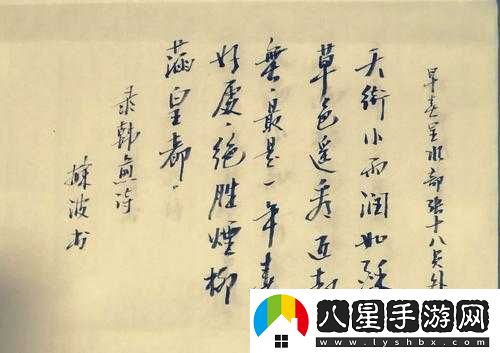 早春呈水部張十八員外
天街小雨潤如酥
草色遙看近却
無、最是一年春
好處、絕勝煙柳
滿皇都。
录韓愈詩
波书
八星手游网
www.lyshbx.com